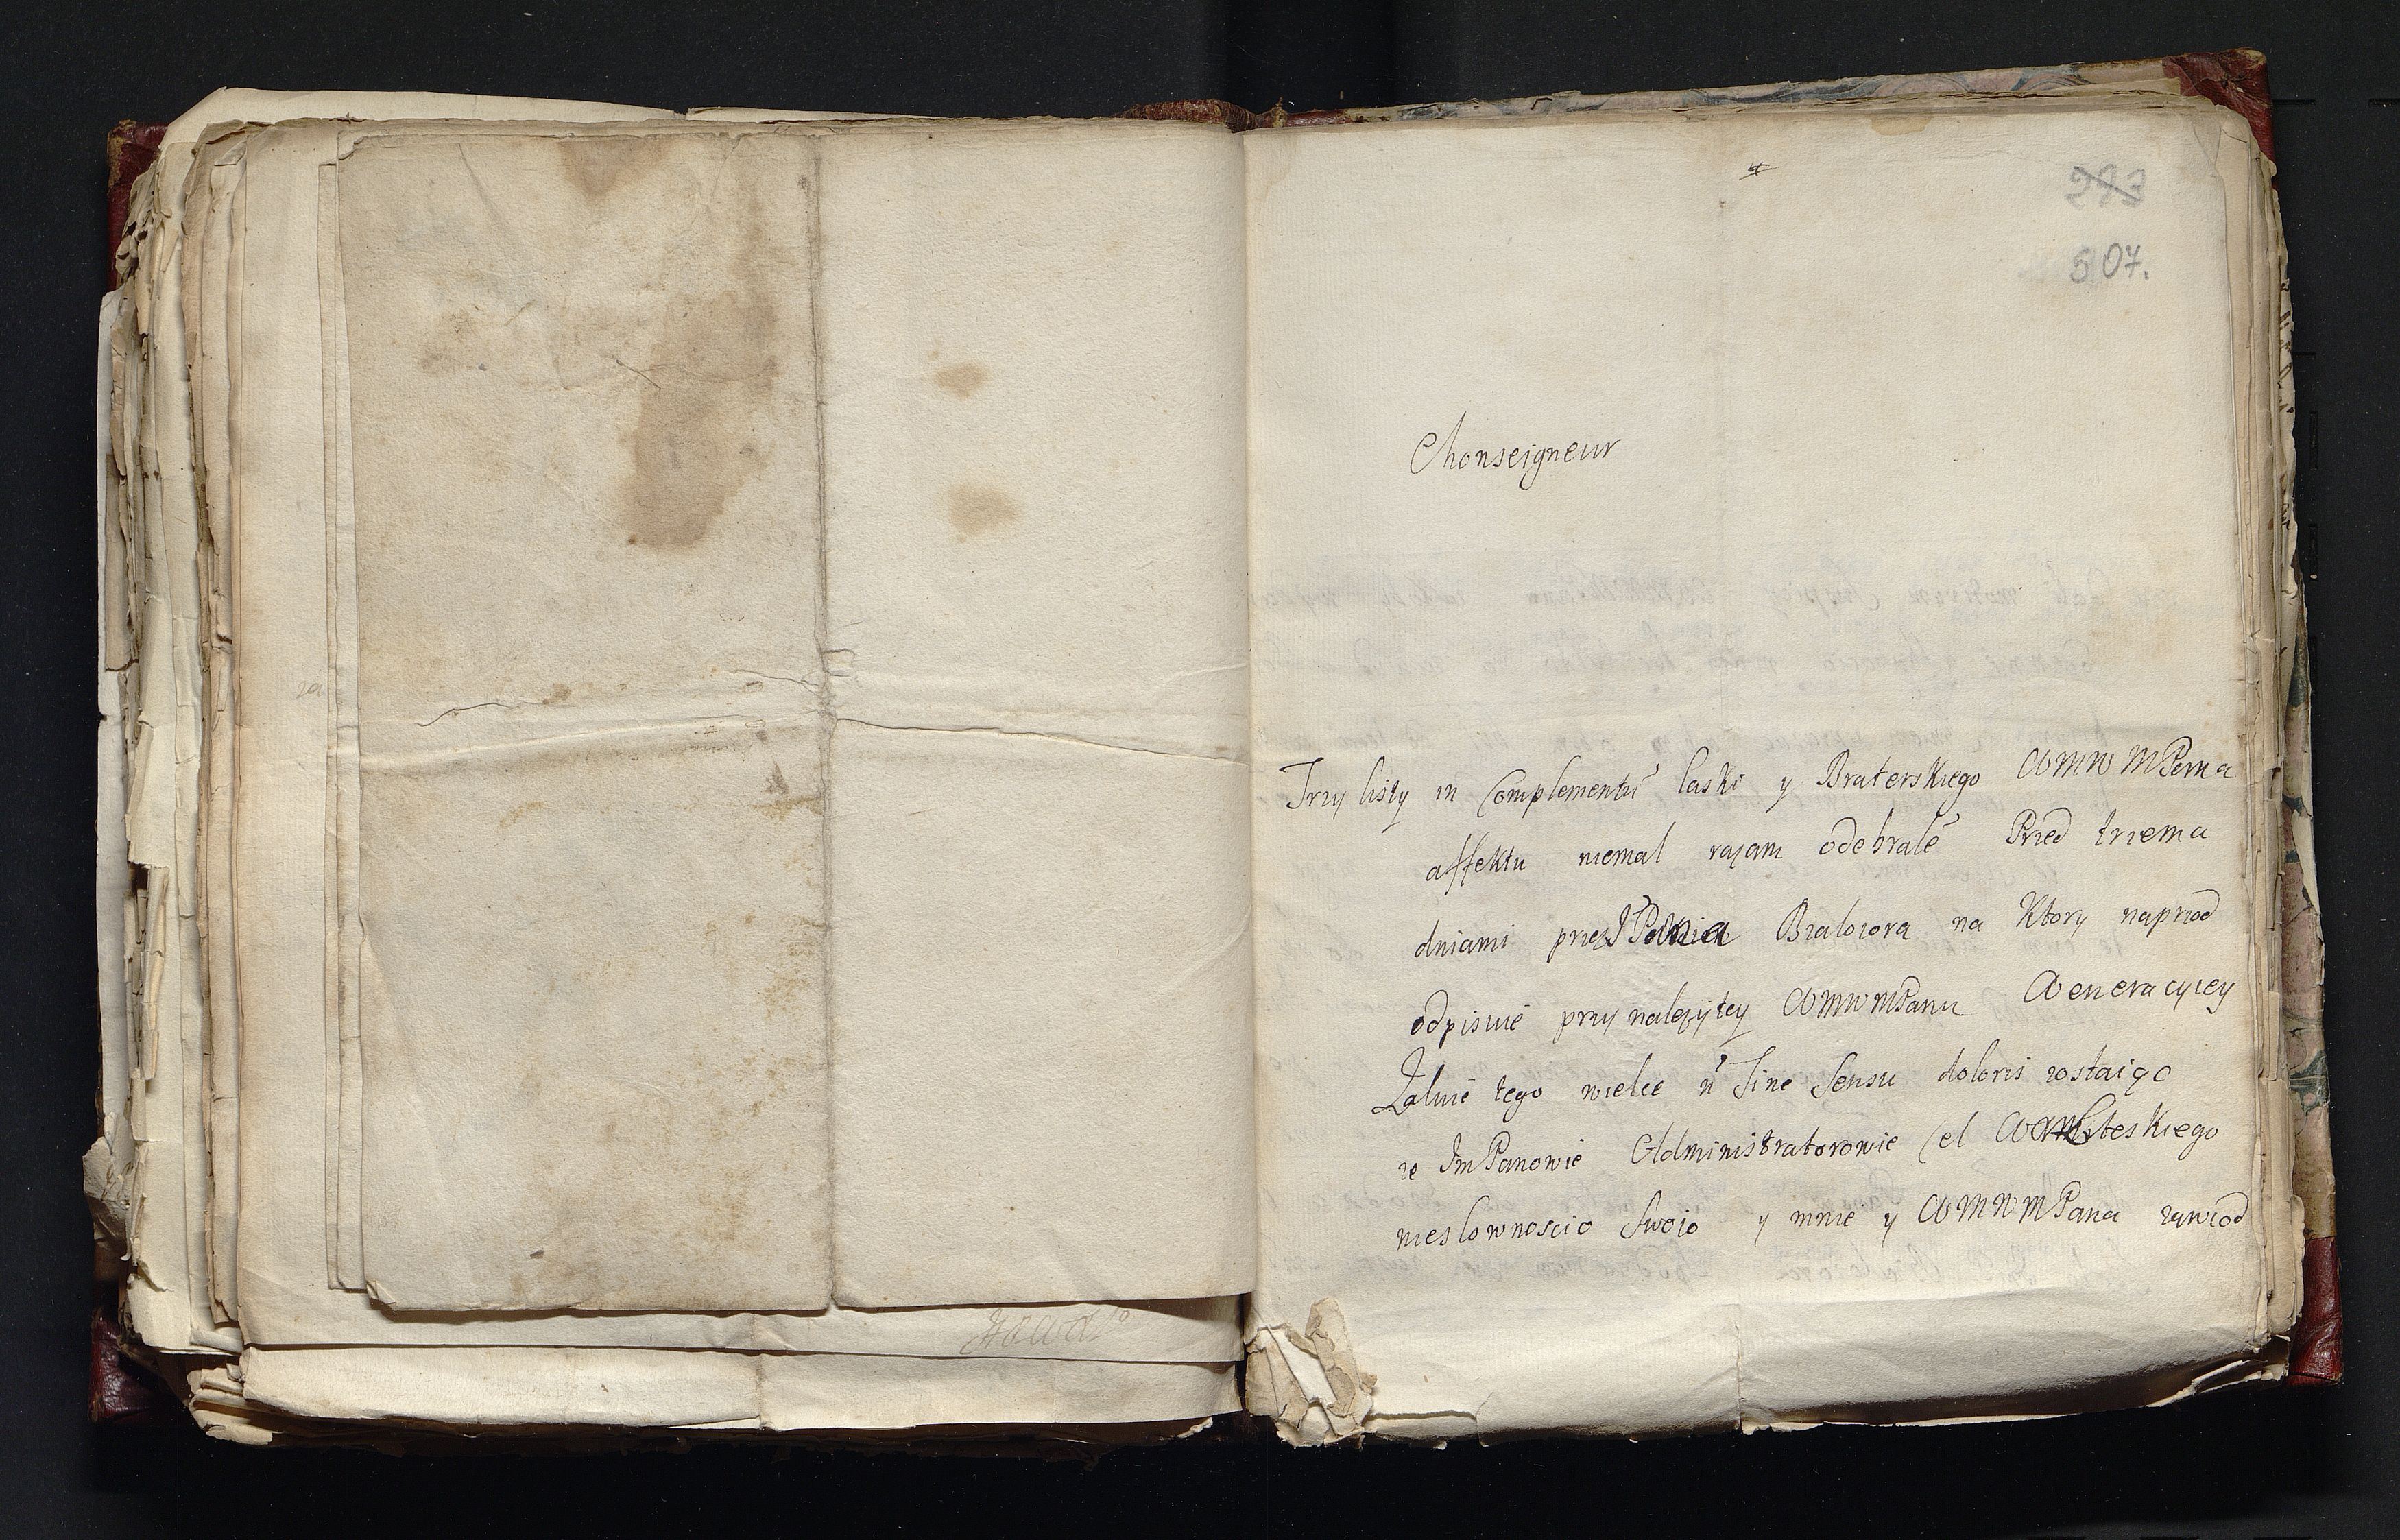 273
507.
Monseigneur
Trzy listy in Complementū laski y Braterskiego WMWMPana
affektu niemal razam odebralē Przed trzema
dniami przez JPania Bialozora na Ktory naprzod
odpisuie przy nalezytey WMWMPanu Weneracyiey
Zaluie tego wielce n Sine Sensu doloris zostaigc
ze ImPanowie Administratorowie Cel
nieslownoscio Swoio y mnie y WMWMPana zawiod